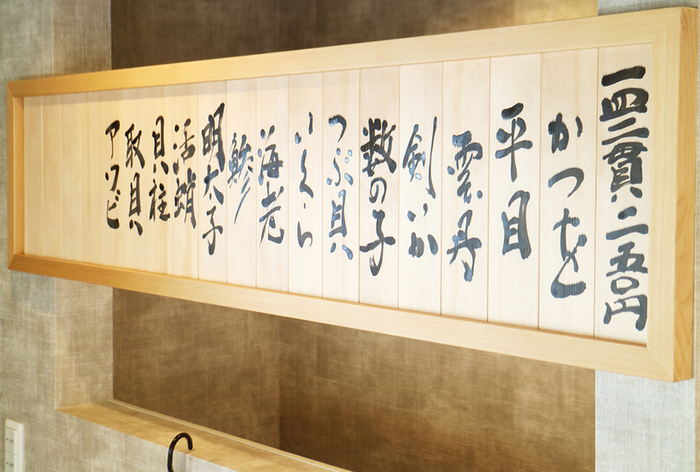 一皿二貫二五〇円
かつを
平目
雲丹
剣いか
数の子
つぶ貝
いくら
海老
鯵
明太子
活蛸
貝柱
取貝
アワビ